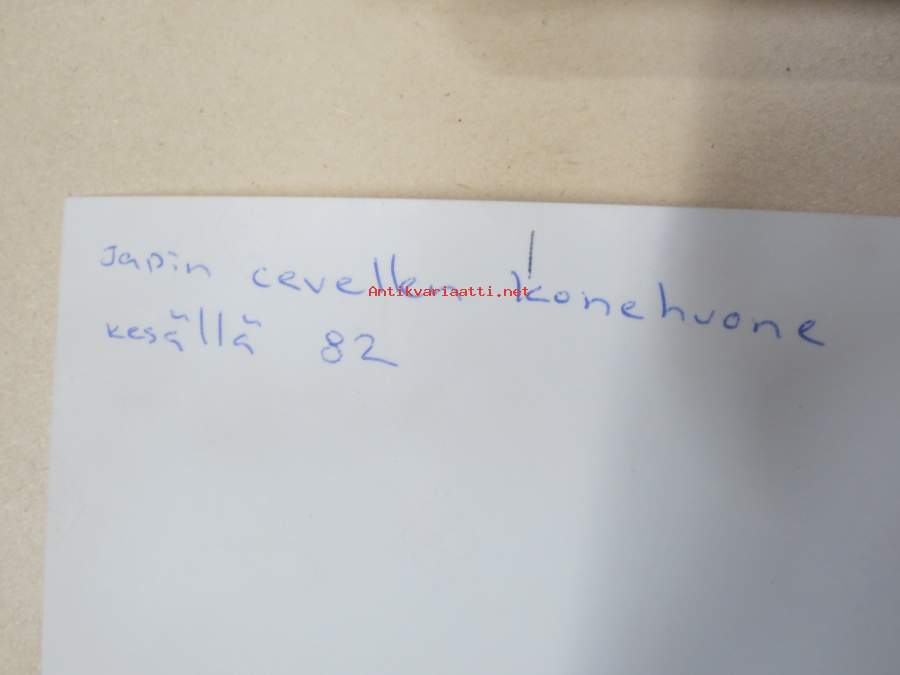 Japin cevellen konehuone
Antikvariaatti.net
kesällä 82